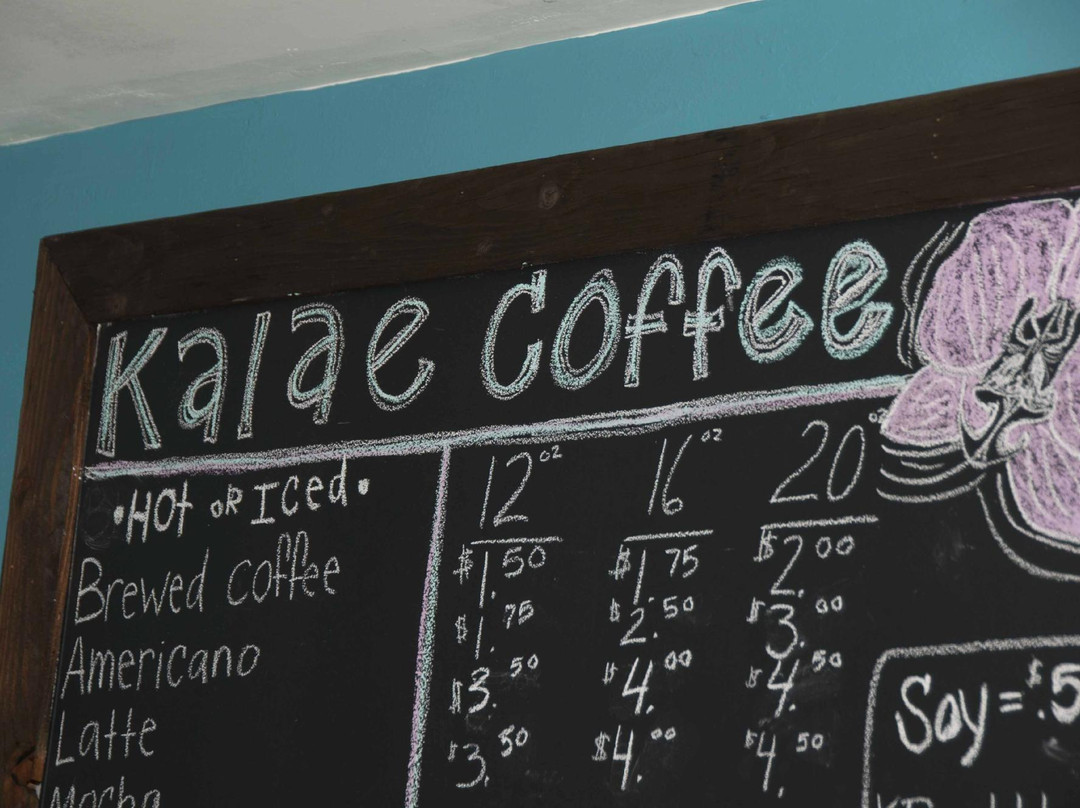 Kalae Coffee
12 oz 16 oz 20 oz
•Hot or Iced•
Brewed coffee $1.50 $1.75 $2.00
Americano $1.75 $2.50 $3.00
Latte $3.50 $4.00 $4.50
Mocha $3.50 $4.00 $4.50
Soy = $.5